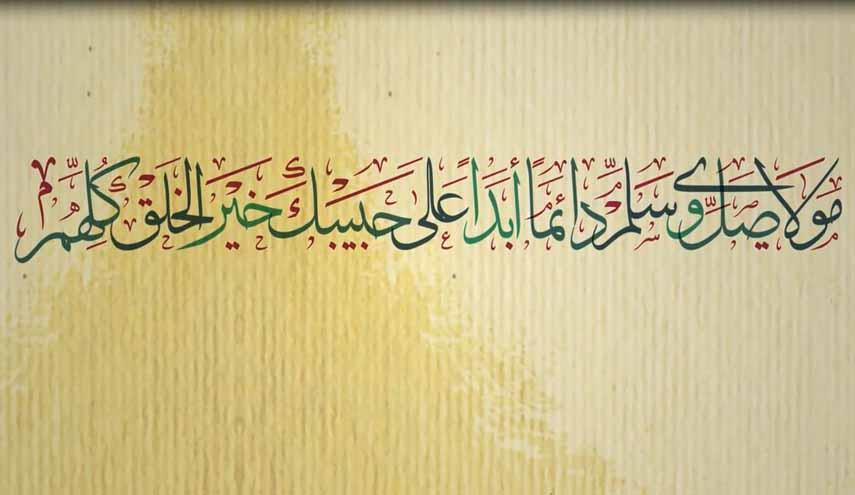 مولاي صل وسلم دائمًا أبدًا على حبيبك خير الخلق كلهم